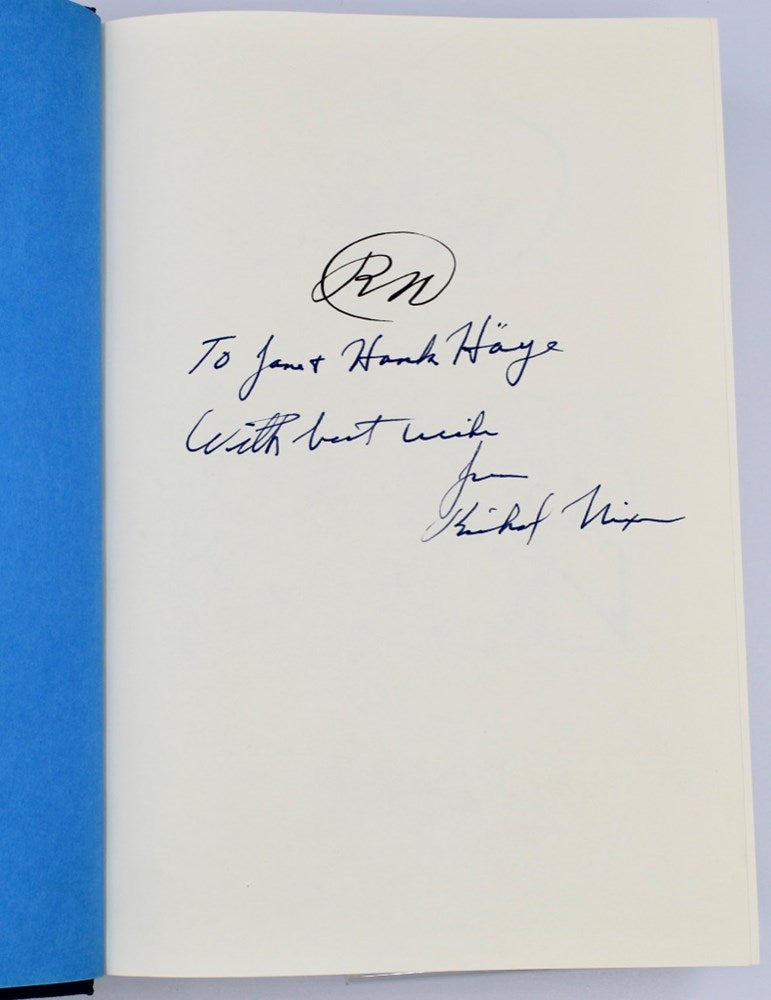 RN
To Jane + Hank Häye
With best wishes
from
Richard Nixon